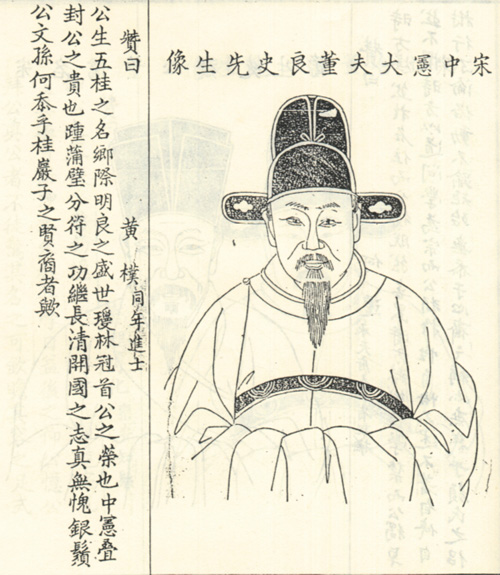 宋中憲大夫董良史先生像
贊曰 黃樸同年進士
公生五桂之名鄉際明良之盛世瓊林冠首公之榮也中憲疊
封公之貴也踵蒲璧分符之功繼長清開國之志真無愧銀鬚
公文孫何忝乎桂巖子之賢裔者歟